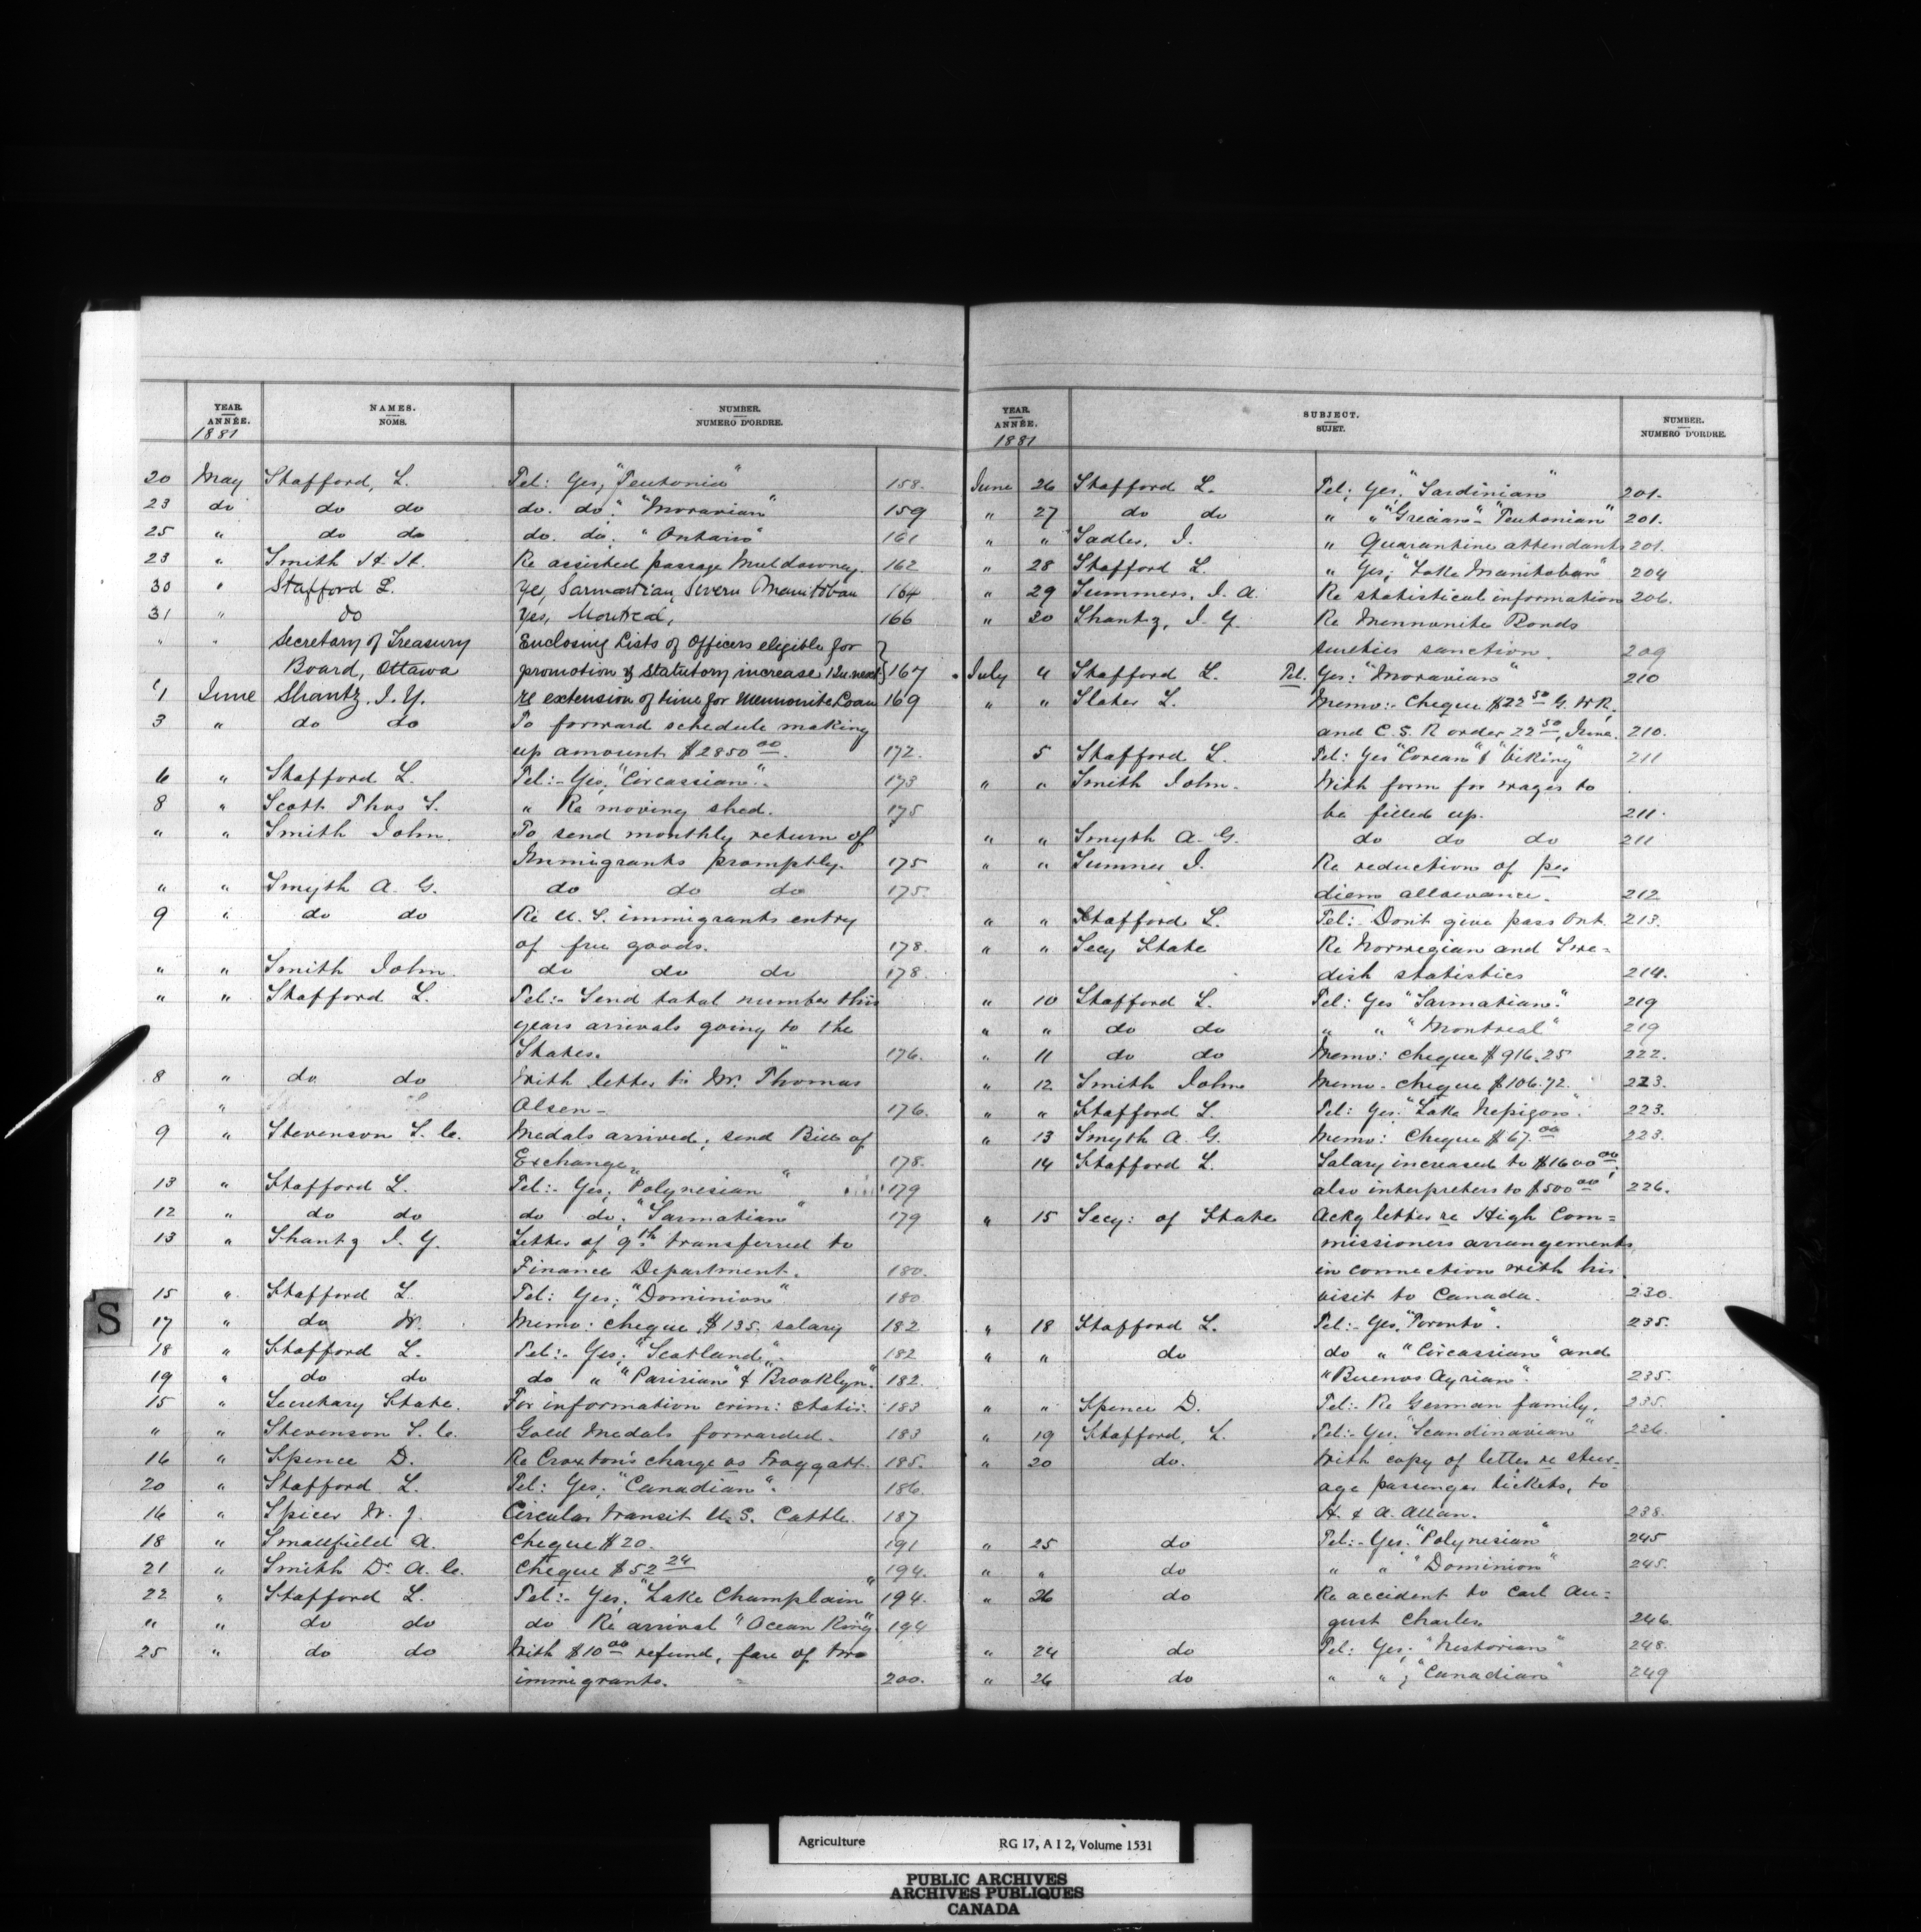 YEAR. ANNÉE. 1881 NAMES. NOMS. NUMBER. NUMERO D'ORDRE.
20 May Stafford, L. Tel: Yes, "Teutonia" 158.
23 do do do do. do: "Moravian" 159
25 " do do do. do: "Ontario" 161
23 " Smith H. H. Re assisted passage Muldowney. 162
30 " Stafford L. Yes, Sarmatian, Severn Manitoban 164
31 " do Yes, Montreal, 166
" " Secretary of Treasury Enclosing Lists of Officers eligible for
Board, Ottawa promotion & Statutory increase 12 next 167
1 June Shantz. J. Y. re extension of time for Mennonite Loan 169
3 " do do To forward schedule making
up amount $2850 00. 172.
6 " Stafford L. Tel:- Yes, "Circassian". 173
8 " Scott Thos S. " Re moving shed. 175
" " Smith John. To send monthly return of
Immigrants promptly. 175
" " Smyth A. G. do do do 175.
9 " do do Re U. S. immigrants entry
of free goods. 178.
" " Smith John. do do do 178.
" " Stafford L. Tel:- Send total number this
years arrivals going to the
States. 176.
8 " do do With letter to Mr. Thomas
" Olsen- 176.
9 " Stevenson S. C. Medals arrived; send Bill of
Exchange. 178.
13 " Stafford L. Tel:- Yes, "Polynesian" 179
12 " do do do do; "Sarmatian" 179
13 " Shantz J. Y. Letter of 9th transferred to
Finance Department. 180.
15 " Stafford L. Tel: Yes; "Dominion" 180
17 " do W. Memo: cheque $135. salary 182
18 " Stafford L. Tel:- Yes; "Scotland" 182
19 " do do do " "Parisian" & "Brooklyn". 182.
15 " Secretary State. For information crim: statis: 183
" " Stevenson S. C. Gold Medals forwarded. 183
16 " Spence D. Re Croxton's charge vs Froggatt. 185.
20 " Stafford L. Tel: Yes; "Canadian". 186.
16 " Spicer W. J. Circular transit U.S. Cattle. 187
18 " Smallfield A. Cheque $20. 191
21 " Smith Dr. A. C. Cheque $52 24 194.
22 " Stafford L. Tel:- Yes, "Lake Champlain" 194.
" " do do do Re arrival "Ocean King" 194
25 " do do With $10 00 refund, fare of two
immigrants. 200.
YEAR. ANNÉE. 1881 SUBJECT. SUJET. NUMBER. NUMERO D'ORDRE.
June 26 Stafford L. Tel: Yes; "Sardinian" 201.
" 27 do do " " "Grecian"- "Teutonian" 201.
" " Sadler, J. " Quarantine attendants 201.
" 28 Stafford L. " Yes; "Lake Manitoban" 204
" 29 Summers, J. A. Re statistical information 206.
" 20 Shantz, J. Y. Re Mennonite Bonds
sureties sanction. 209
July 4 Stafford L. Tel. Yes: "Moravian" 210
" " Slater L. Memo:- Cheque $22 50 G. W R,
and C. S. R order 22 50, June. 210.
5 Stafford L. Tel: Yes "Corean" & "Viking" 211
" " Smith John. With form for wages to
be filled up. 211.
" " Smyth A. G. do do do 211
" " Sumner J. Re reduction of per
diem allowance. 212
" " Stafford L. Tel:- Don't give pass Ont. 213.
" " Secy State Re Norwegian and Swe=
dish statistics 214.
" 10 Stafford L. Tel: Yes "Sarmatian." 219
" " do do " " "Montreal" 219
" 11 do do Memo: cheque $916.25 222.
" 12 Smith John Memo- cheque $106.72. 223.
" " Stafford L. Tel: Yes. "Lake Nepigon". 223.
" 13 Smyth A. G. Memo: Cheque $67.00 223.
14 Stafford L. Salary increased to $1600 00;
also interpreters to $500 00 226.
" 15 Secy: of State Ackg letter re High Com=
missioners arrangements
in connection with his
visit to Canada. 230.
" 18 Stafford L. Tel:- Yes, "Toronto". 235.
" " do do " "Circassian" and
"Buenos Ayrian". 235.
" " Spence D. Tel:- Re German family. 235.
" 19 Stafford, L. Tel:- Yes. "Scandinavian" 236.
" 20 do. With copy of letter re steer-
age passenger tickets, to
H. & A. Allan. 238.
" 25 do Tel:- Yes. "Polynesian" 245
" " do " " "Dominion" 245.
" 26 do Re accident to Carl Au=
gust Charles. 246.
" 24 do Tel: Yes; "Nestorian" 248.
" 26 do " "; "Canadian" 249
S
Agriculture RG 17, A I 2, Volume 1531
PUBLIC ARCHIVES
ARCHIVES PUBLIQUES
CANADA